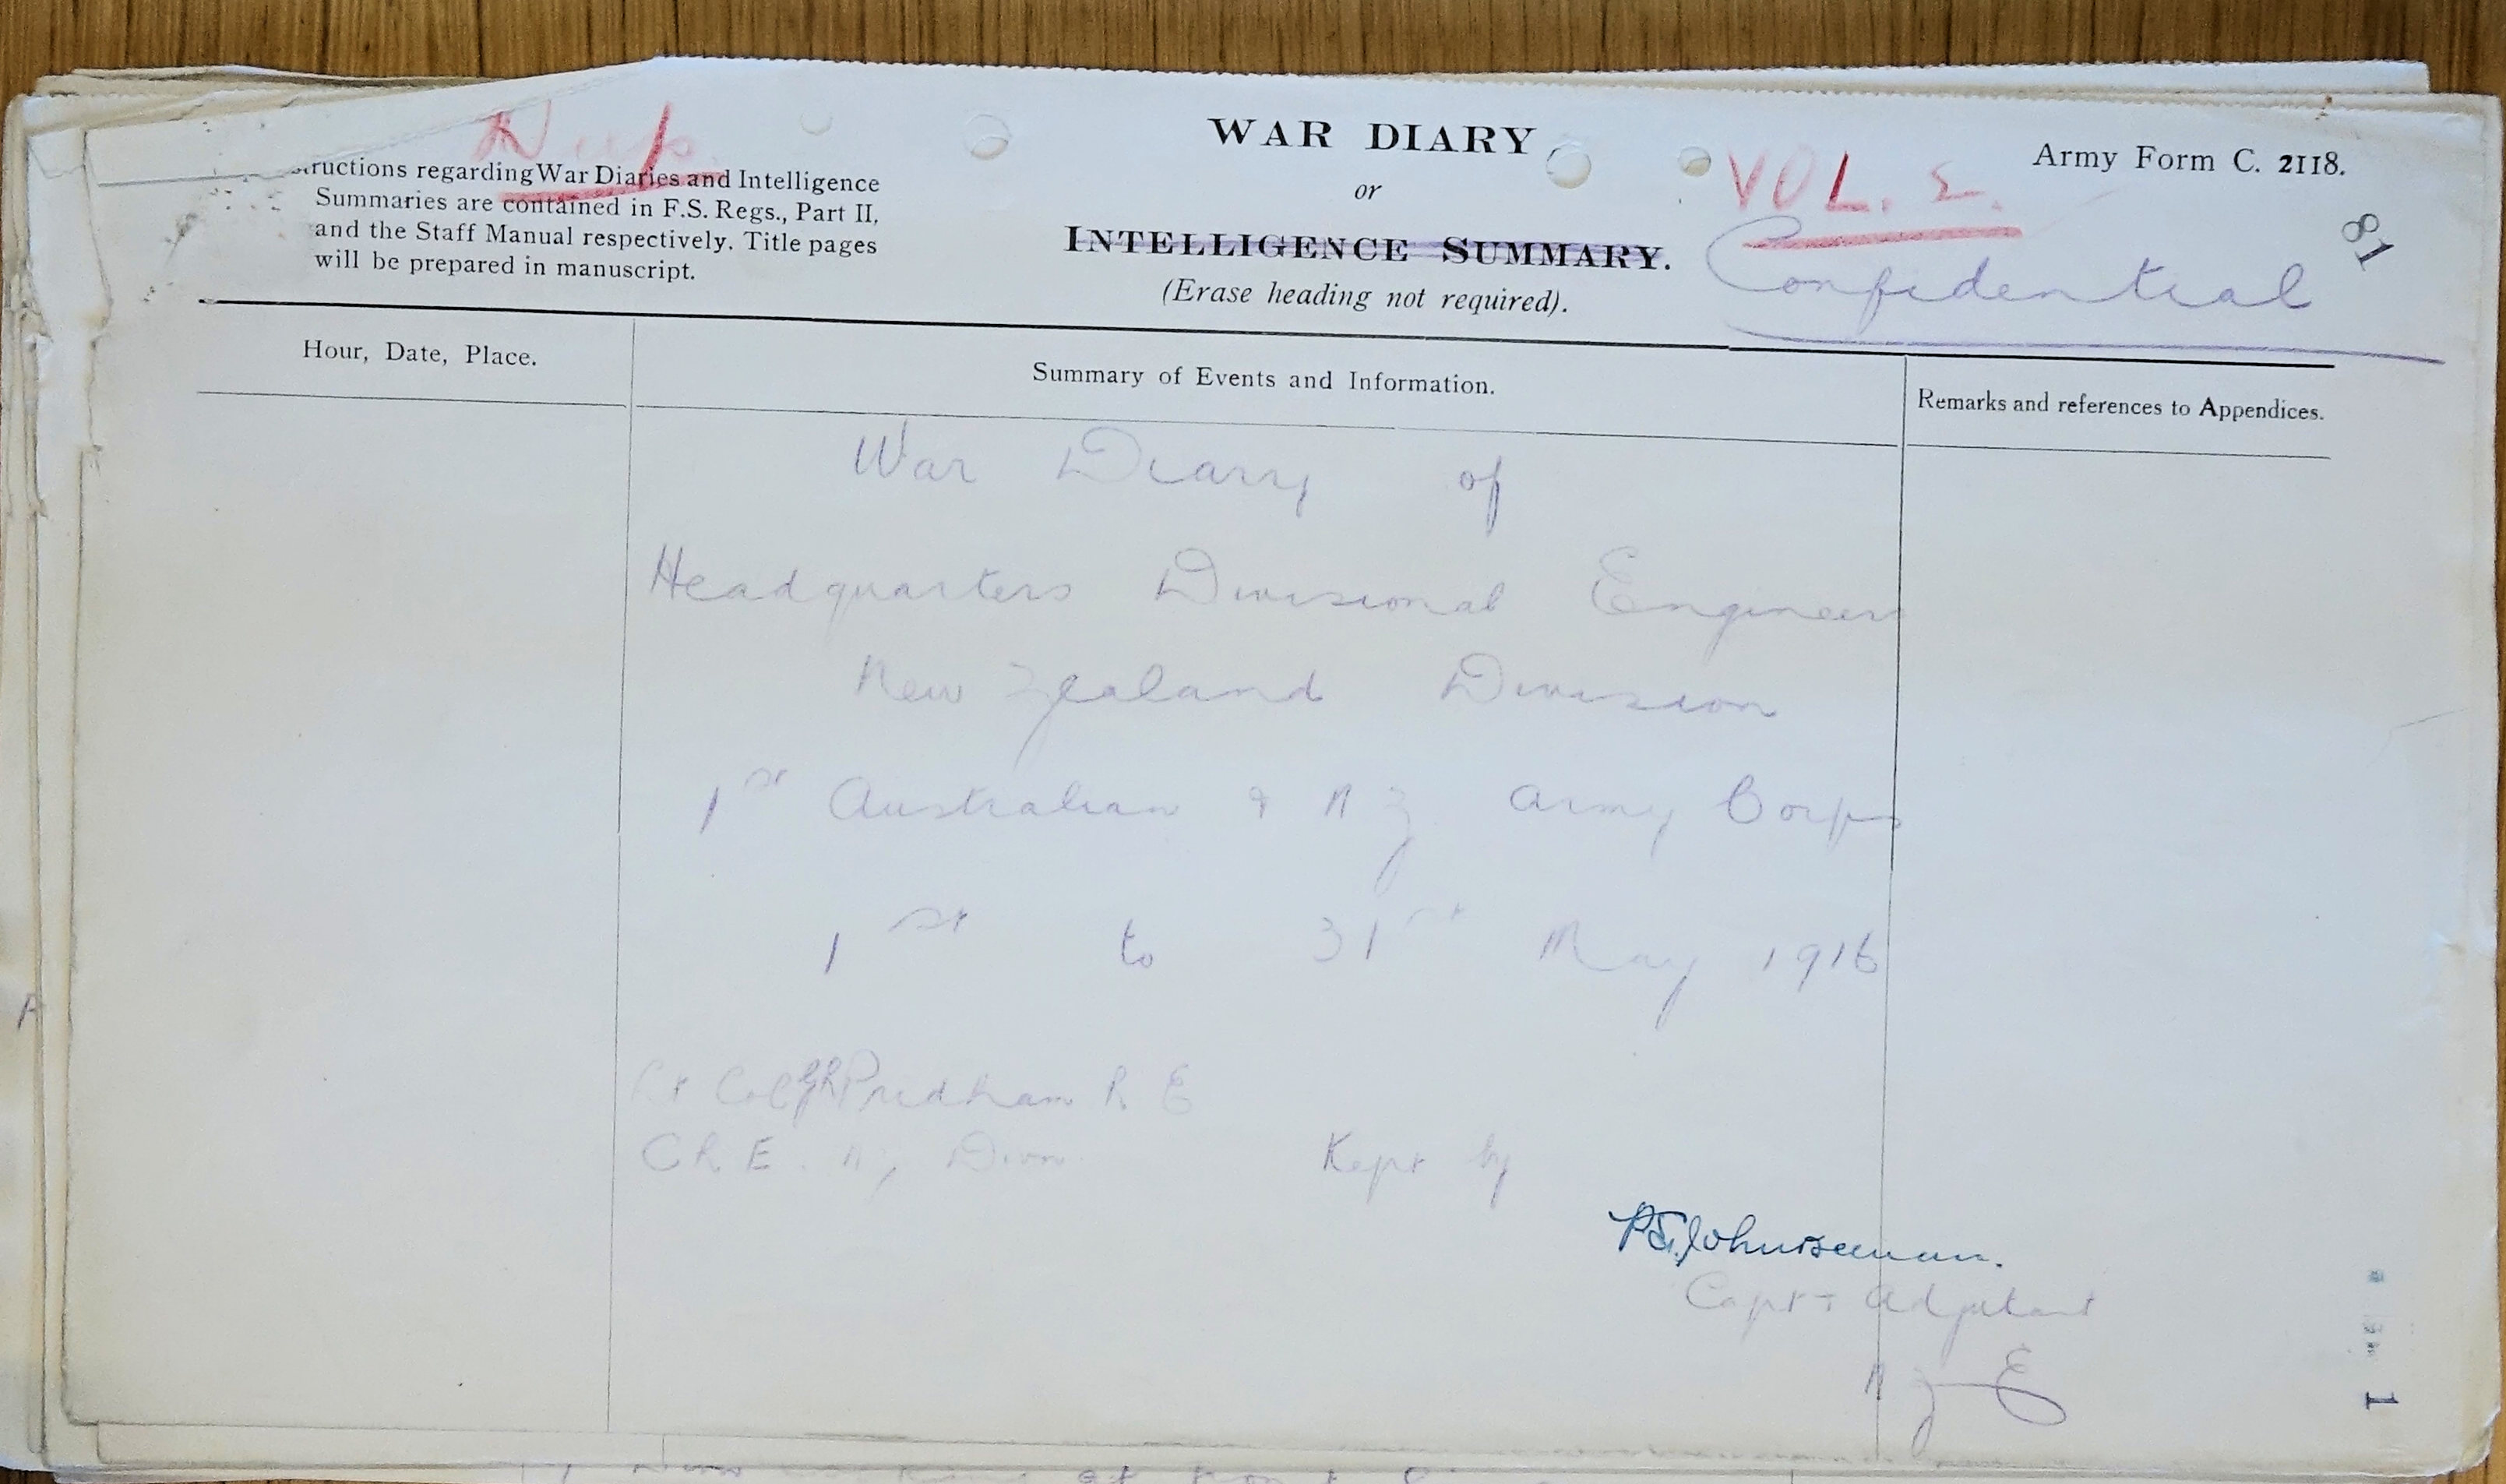 WAR DIARY
or
INTELLIGENCE SUMMARY.
(Erase heading not required).
Army Form C. 2118.
VOL. 2.
Confidential
81
ructions regarding War Diaries and Intelligence
Summaries are contained in F.S. Regs., Part II,
and the Staff Manual respectively. Title pages
will be prepared in manuscript.
Hour, Date, Place.
Summary of Events and Information.
Remarks and references to Appendices.
War Diary of
Headquarters Divisional Engineers
New Zealand Division
1st Australian & NZ Army Corps
1st to 31st May 1916
Lt Col Pridham R E
CRE. NZ Divn
Kept by
Capt & Adjutant
NZE
1